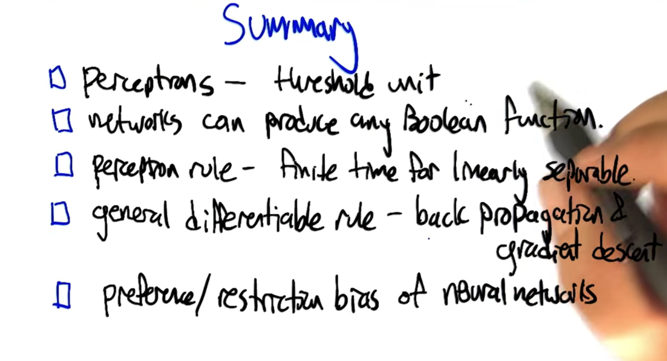 Summary
perceptrons – threshold unit
networks can produce any Boolean function.
perceptron rule – finite time for linearly separable.
general differentiable rule – back propagation &
gradient descent
preference/restriction bias of neural networks